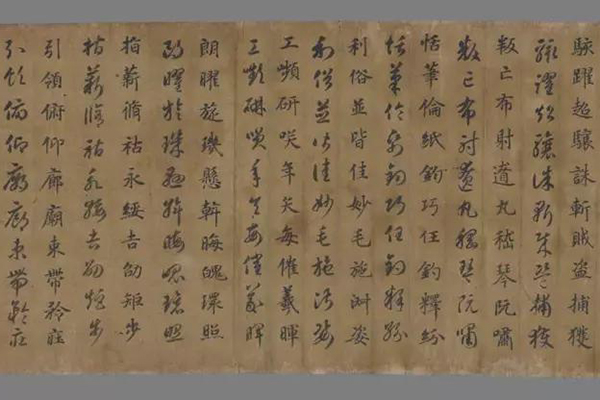 駭躍超驤誅斬賊盜捕獲
駭躍超驤誅斬賊盜捕獲
叛亡布射遼丸嵇琴阮嘯
叛亡布射遼丸嵇琴阮嘯
恬筆倫紙鈞巧任釣釋紛
恬筆倫紙鈞巧任釣釋紛
利俗並皆佳妙毛施淑姿
利俗並皆佳妙毛施淑姿
工嚬研咲年矢每催羲暉
工嚬研咲年矢每催羲暉
朗曜旋璣懸斡晦魄環照
朗曜旋璣懸斡晦魄環照
指薪脩祜永綏吉劭矩步
指薪脩祜永綏吉劭矩步
引領俯仰廊廟束帶矜庄
引領俯仰廊廟束帶矜庄